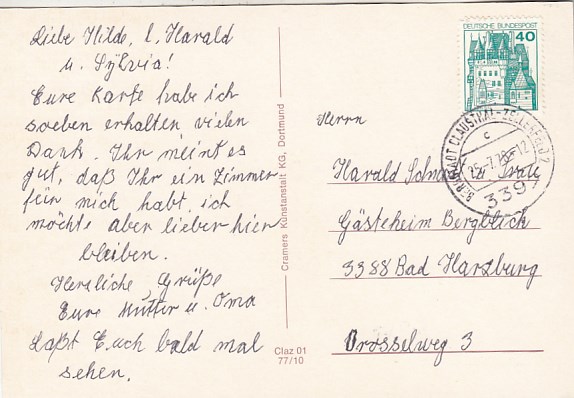 Liebe Hilde, l, Harald
u. Sylvia!
Eure Karte habe ich
soeben erhalten, vielen
Dank. Ihr meint es
gut, daß Ihr ein Zimmer
für mich habt, ich
möchte aber lieber hier
bleiben.
Herzliche Grüße
Eure Mutter u. Oma
Laßt Euch bald mal
sehen.
Cramers Kunstanstalt KG, Dortmund
Claz 01
77/10
DEUTSCHE BUNDESPOST
40
BERGSTADT CLAUSTHAL-ZELLERFELD 2
c
-12
339
Herrn
Harald
Gästeheim Bergblick
3388 Bad Harzburg
Drosselweg 3